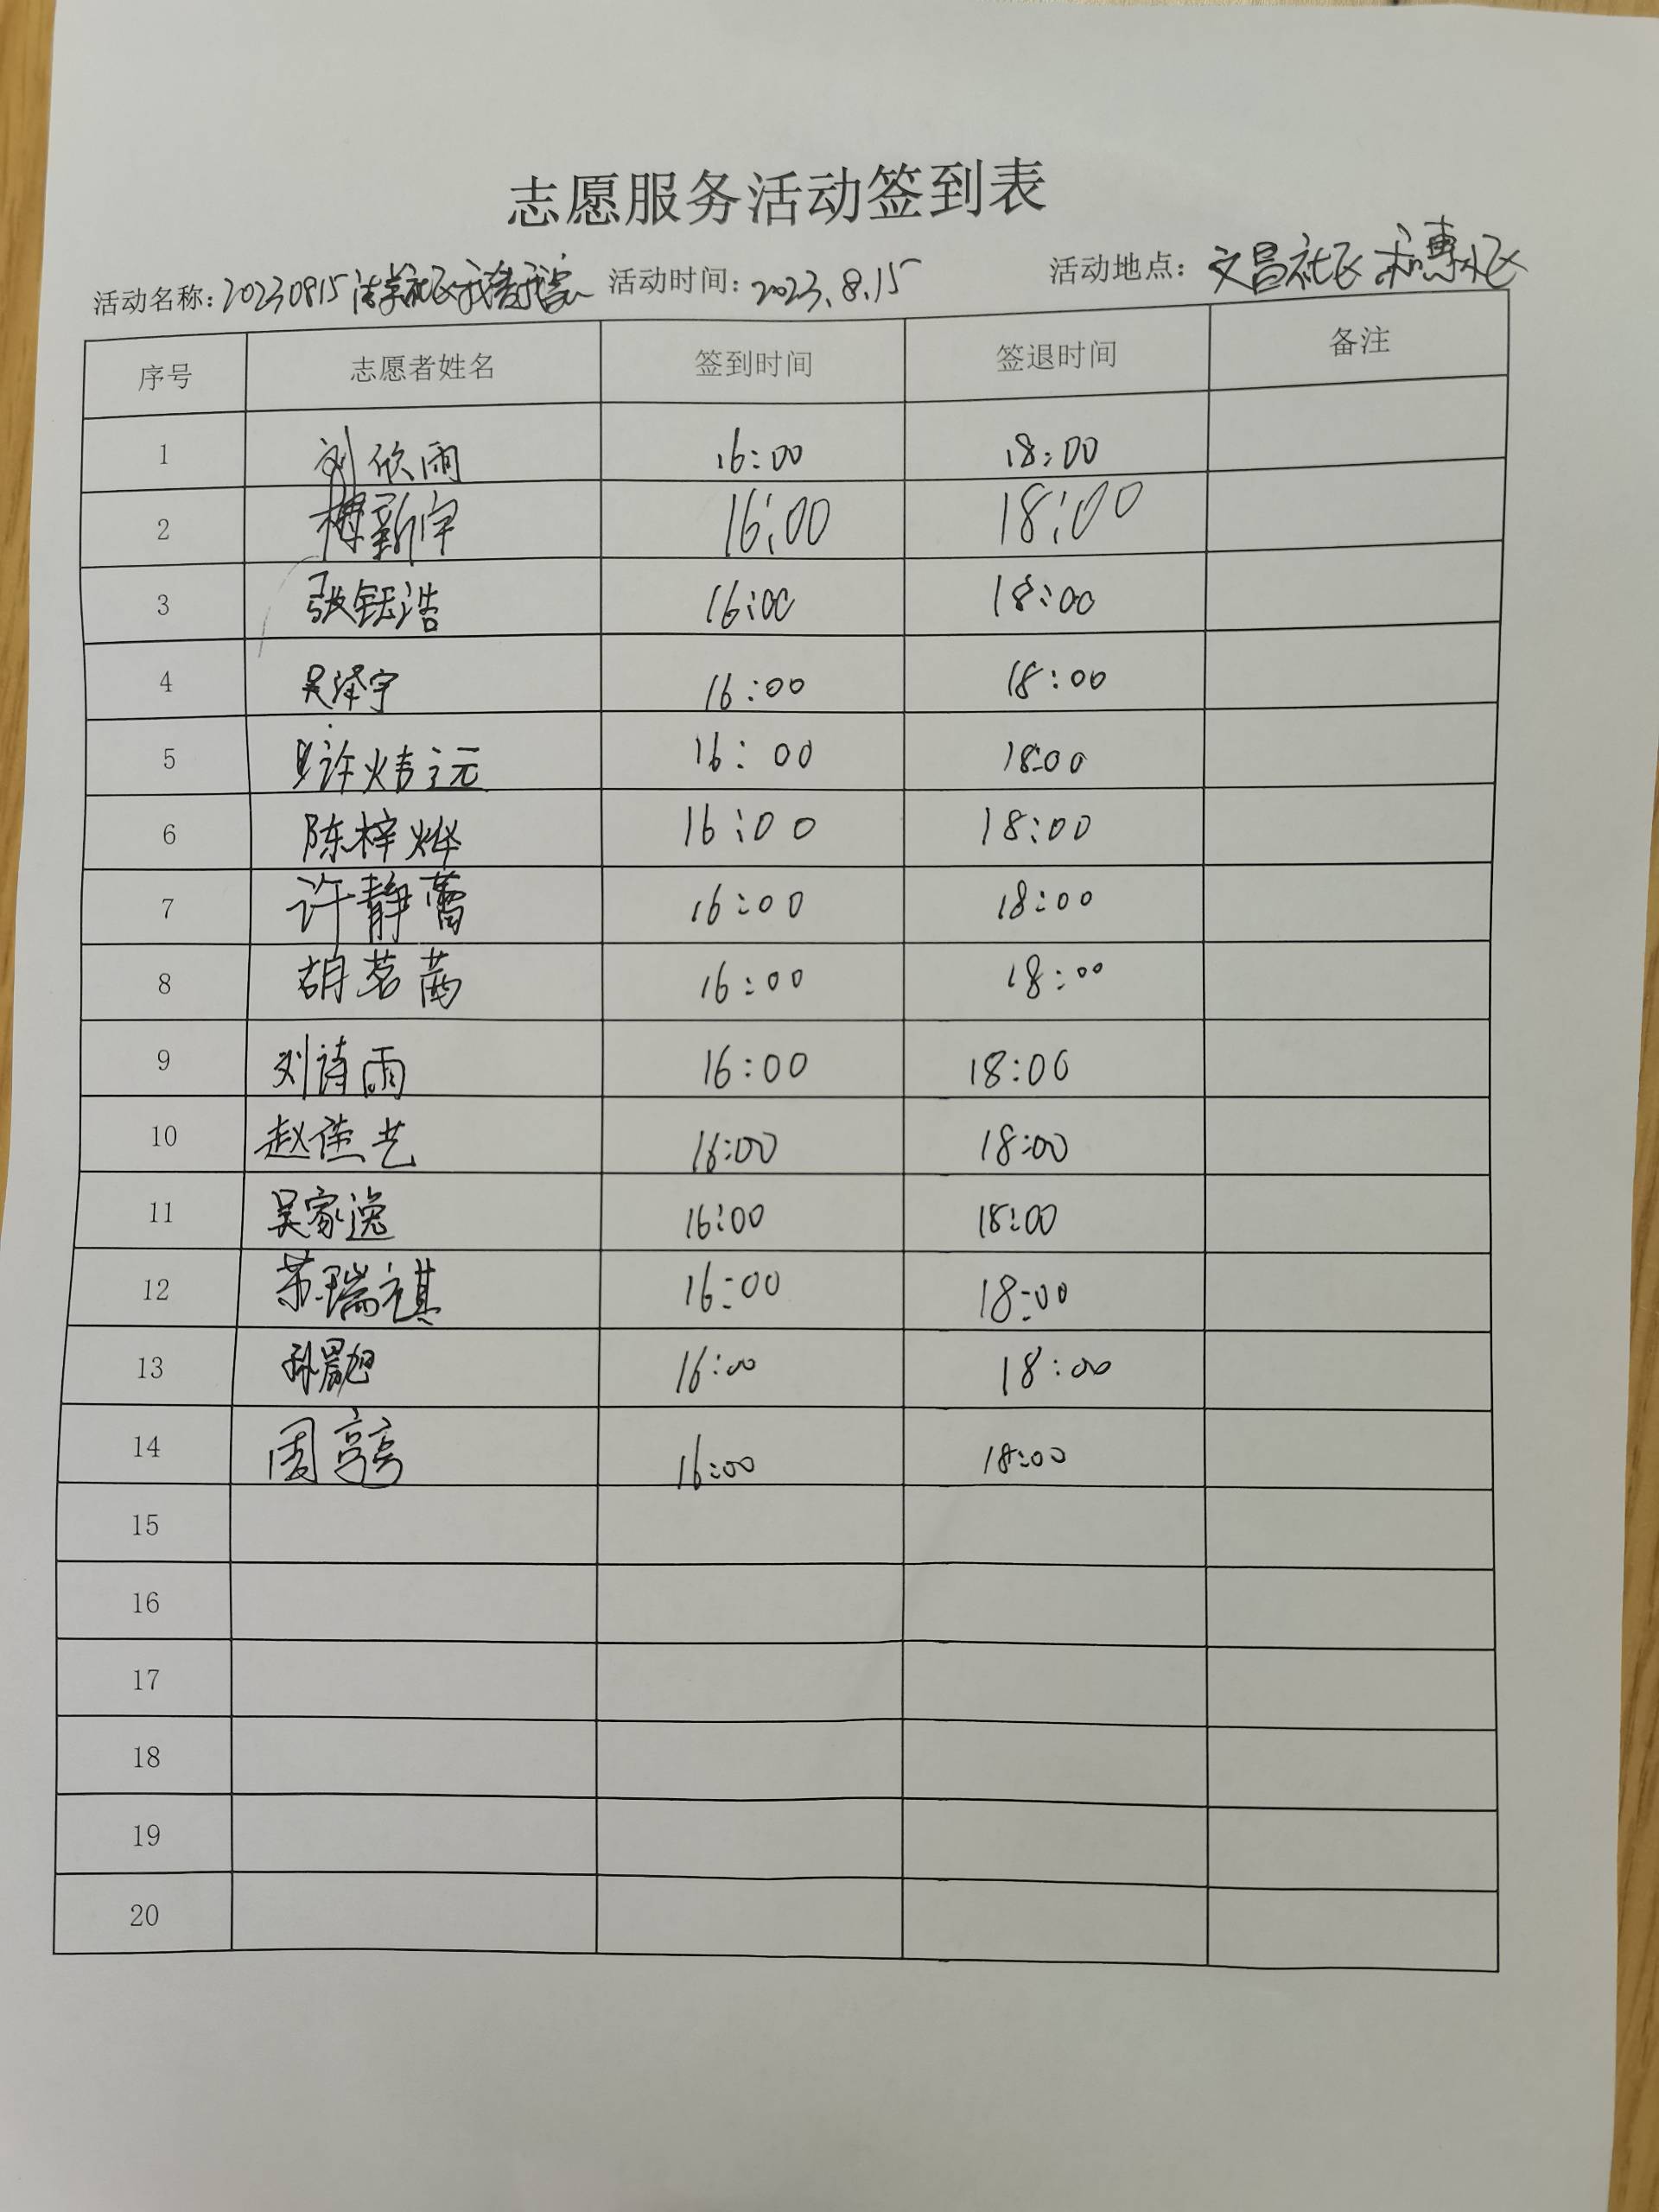 志愿服务活动签到表
活动名称：20230815 活动时间：2023.8.15 活动地点：文昌社区 和惠小区
序号 志愿者姓名 签到时间 签退时间 备注
1 刘欣雨 16:00 18:00
2 傅新宇 16:00 18:00
3 张钰浩 16:00 18:00
4 吴泽宇 16:00 18:00
5 许炜元 16:00 18:00
6 陈梓烨 16:00 18:00
7 许静蕾 16:00 18:00
8 胡茗茜 16:00 18:00
9 刘诗雨 16:00 18:00
10 赵佳艺 16:00 18:00
11 吴家逸 16:00 18:00
12 荣瑞祺 16:00 18:00
13 孙 16:00 18:00
14 周 16:00 18:00
15
16
17
18
19
20